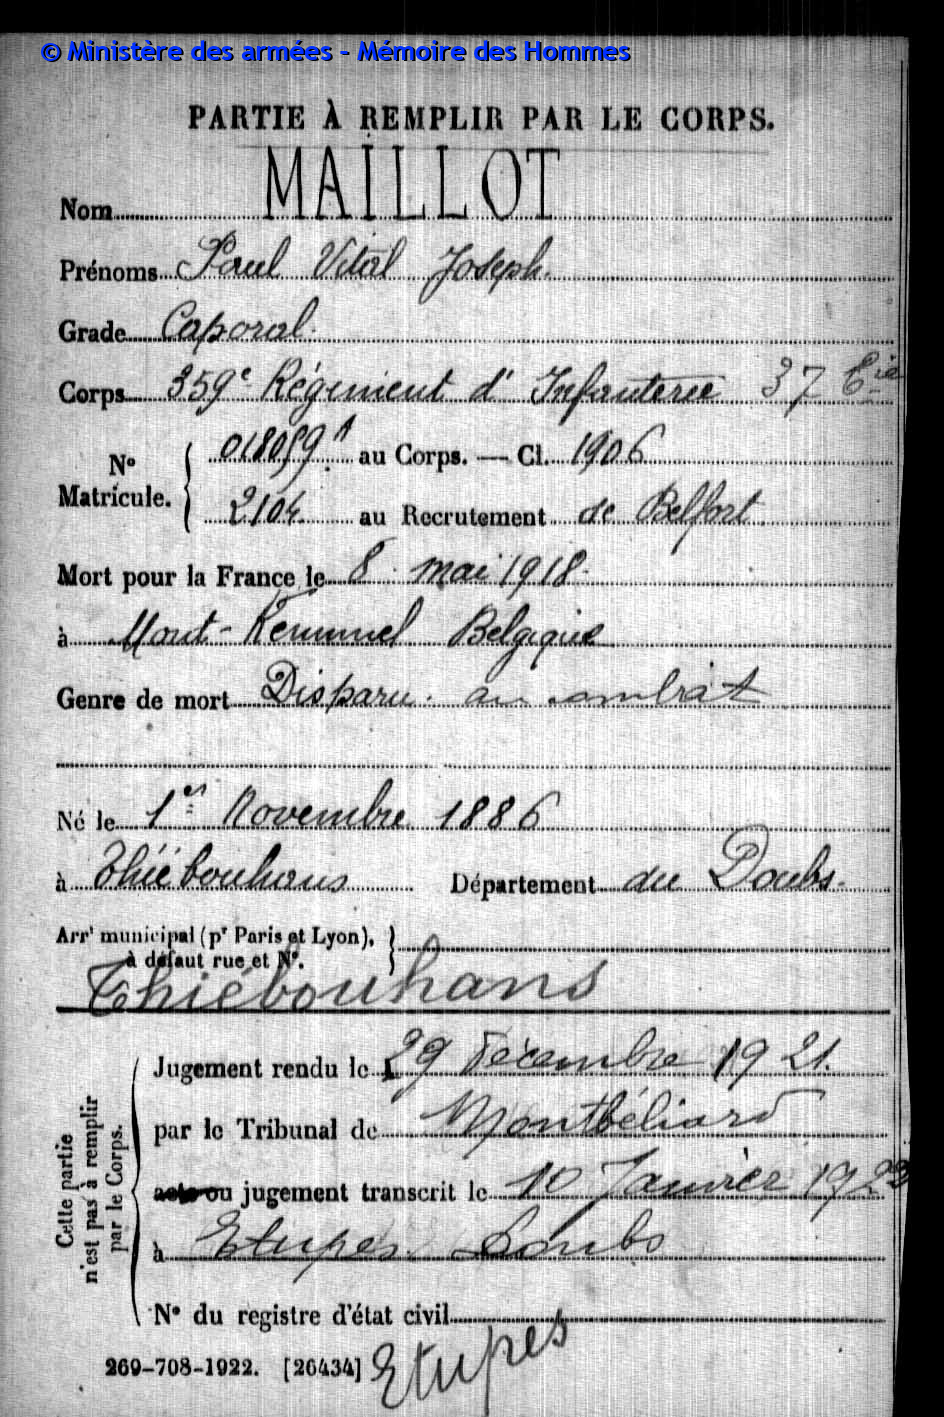 © Ministère des armées - Mémoire des Hommes
PARTIE À REMPLIR PAR LE CORPS.
Nom MAILLOT
Prénoms Paul Vital Joseph.
Grade Caporal.
Corps 359e Régiment d' Infanterie 37 Cie
N° Matricule. { 018059 A au Corps. — Cl. 1906
2104 au Recrutement de Belfort
Mort pour la France le 8 mai 1918
à Mont-Kemmel Belgique
Genre de mort Disparu au combat
Né le 1er Novembre 1886
à Thiébouhans Département du Doubs.
Arrt municipal (pr Paris et Lyon),
à défaut rue et N°. }
Thiébouhans
Cette partie n'est pas à remplir par le Corps.
Jugement rendu le 29 Décembre 1921.
par le Tribunal de Montbéliard
acte ou jugement transcrit le 10 Janvier 1922
à Etupes Doubs
N° du registre d'état civil
269-708-1922. [26434] Etupes